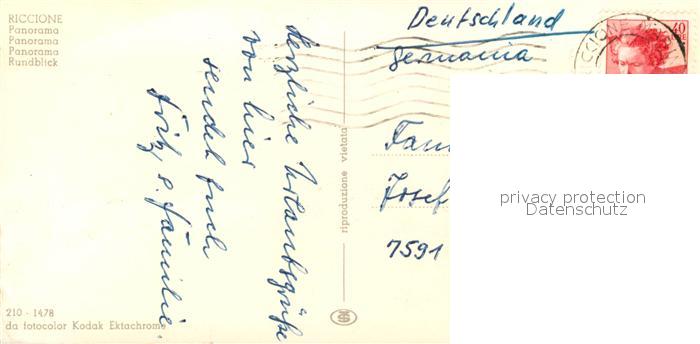 RICCIONE
Panorama
Panorama
Panorama
Rundblick
Herzliche Urlaubsgrüße
von hier
sendet Euch
Fritz, s. Familie.
210 - 1478
da fotocolor Kodak Ektachrome
riproduzione vietata
Deutschland
Germania
RICCIONE
40
Fam
Josef
7591
privacy protection
Datenschutz